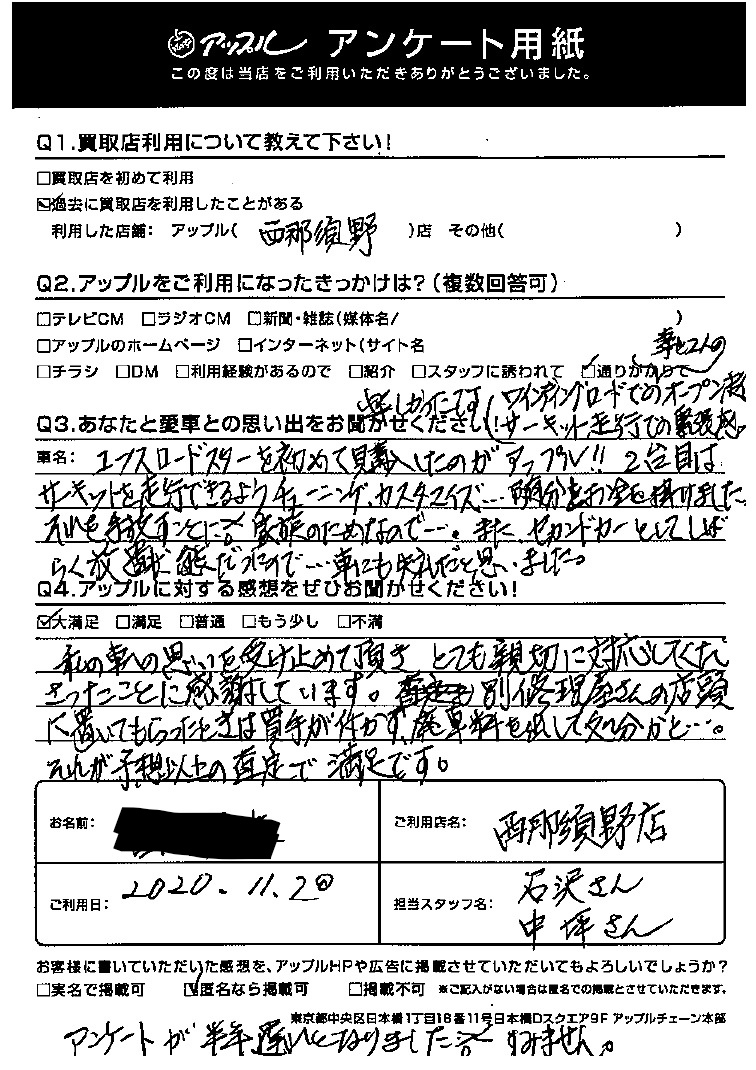 アップル アンケート用紙
この度は当店をご利用いただきありがとうございました。
Q1.買取店利用について教えて下さい!
□買取店を初めて利用
☑過去に買取店を利用したことがある
利用した店舗: アップル( 西那須野 )店 その他( )
Q2.アップルをご利用になったきっかけは?(複数回答可)
□テレビCM □ラジオCM □新聞・雑誌(媒体名/ )
□アップルのホームページ □インターネット(サイト名
□チラシ □DM □利用経験があるので □紹介 □スタッフに誘われて ☑通りがかりで
車と2人の
楽しかったです(ワインディングロードでのオープン走行
Q3.あなたと愛車との思い出をお聞かせください!
サーキット走行での緊張感
車名: エヌスロードスターを初めて購入したのがアップル!! 2台目は
サーキットを走行できるようチューニング、カスタマイズ…自分もお金を掛けました。
それを手放すことに 家族のためなので…。また、セカンドカーとしてしば
らく放置状態だったので…車にも失礼だと思いました。
Q4.アップルに対する感想をぜひお聞かせください!
☑大満足 □満足 □普通 □もう少し □不満
私の車への思いを受け止めて頂き とても親切に対応してくだ
さったことに感謝しています。 別 さんの店頭
に置いてもらったときは買手が付かず、廃車料を出して処分かと…。
それが予想以上の査定で満足です。
お名前:
ご利用店名: 西那須野店
ご利用日: 2020.11.2
担当スタッフ名: 石沢さん
中坪さん
お客様に書いていただいた感想を、アップルHPや広告に掲載させていただいてもよろしいでしょうか?
□実名で掲載可 ☑匿名なら掲載可 □掲載不可 ※ご記入がない場合は匿名での掲載とさせていただきます。
東京都中央区日本橋1丁目16番11号日本橋Dスクエア9F アップルチェーン本部
アンケートが半年遅いとなりました すみません。